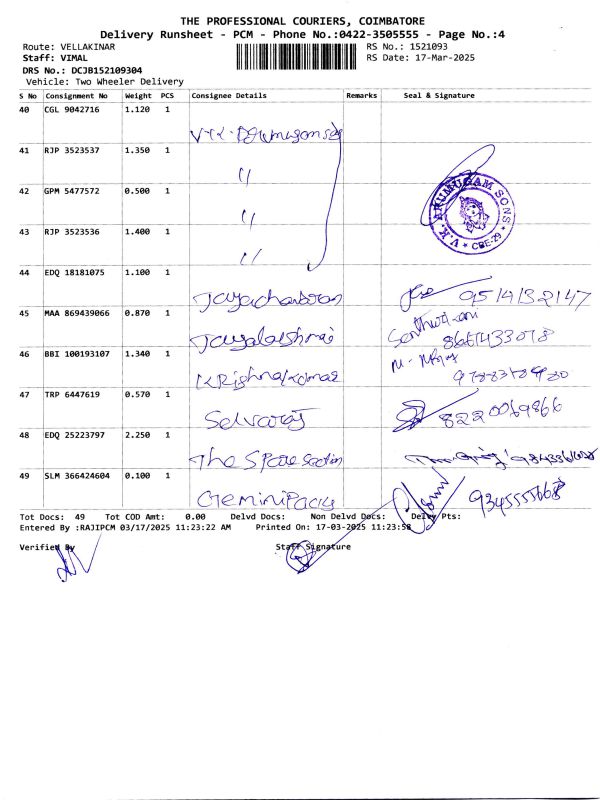 THE PROFESSIONAL COURIERS, COIMBATORE
Delivery Runsheet - PCM - Phone No.:0422-3505555 - Page No.:4
Route: VELLAKINAR RS No.: 1521093
Staff: VIMAL RS Date: 17-Mar-2025
DRS No.: DCJB152109304
Vehicle: Two Wheeler Delivery
S No Consignment No Weight PCS Consignee Details Remarks Seal & Signature
40 CGL 9042716 1.120 1
41 RJP 3523537 1.350 1 "
42 GPM 5477572 0.500 1 "
V.K. ARUMUGAM SONS * CBE-29 *
43 RJP 3523536 1.400 1 "
44 EDQ 18181075 1.100 1
Jayachandran 9514132147
45 MAA 869439066 0.870 1
Jayalakshmi
46 BBI 100193107 1.340 1
Krishnakumar
47 TRP 6447619 0.570 1
Selvaraj 8220069866
48 EDQ 25223797 2.250 1
The Spare Section
49 SLM 366424604 0.100 1
Gemini Packg 9345555668
Tot Docs: 49 Tot COD Amt: 0.00 Delvd Docs: Non Delvd Docs: Delvy Pts:
Entered By :RAJIPCM 03/17/2025 11:23:22 AM Printed On: 17-03-2025 11:23:58
Verified By Staff Signature